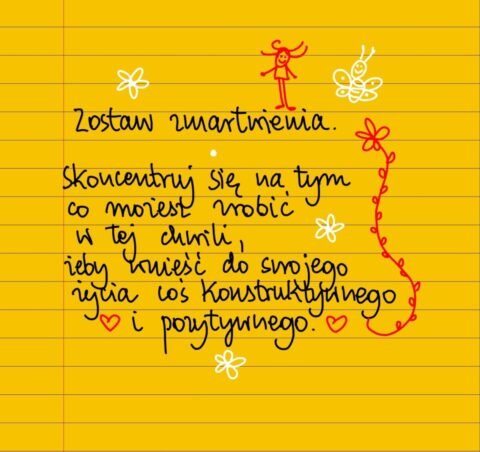 Zostaw zmartwienia.
Skoncentruj się na tym
co możesz zrobić
w tej chwili,
żeby wnieść do swojego
życia coś konstruktywnego
i pozytywnego.